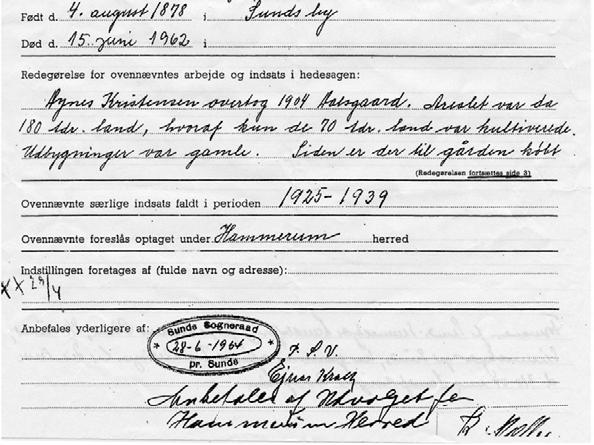 Født d. 4. august 1878 i Sunds by
Død d. 15. juni 1962 i
Redegørelse for ovennævntes arbejde og indsats i hedesagen:
Agnes Kristensen overtog 1904 Aalsgaard. Arealet var da
180 tdr. land, hvoraf kun de 70 tdr. land var kultiverede.
Udbygninger var gamle. Siden er der til gården købt
(Redegørelsen fortsættes side 3)
Ovennævnte særlige indsats faldt i perioden 1925-1939
Ovennævnte foreslås optaget under Hammerum herred
Indstillingen foretages af (fulde navn og adresse):
XX 29/4
Anbefales yderligere af:
Sunds Sogneraad
28-6-1964
pr. Sunds
P. S. V.
Ejnar
Anbefales af Udvalget for
Hammerum Herred